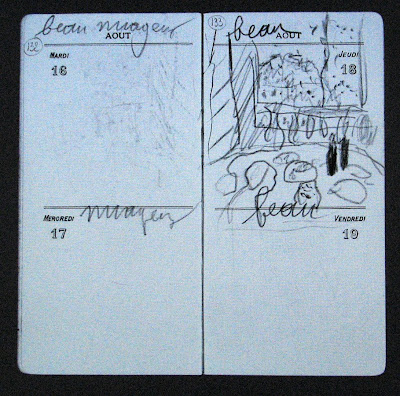 beau nuageux
132
AOUT
MARDI
16
nuageux
MERCREDI
17
133
beau
AOUT
JEUDI
18
beau
VENDREDI
19